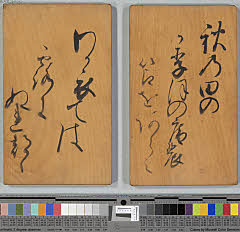 秋乃田の
かりほの庵の
苫をあらみ
わか衣ては
露に
ぬれつゝ